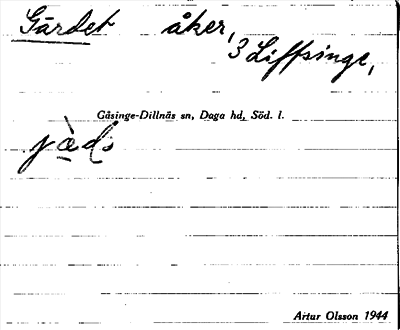 Gärdet åker,
3 Liffsinge,
Gåsinge-Dillnäs sn, Daga hd, Söd. l.
jàds
Artur Olsson 1944